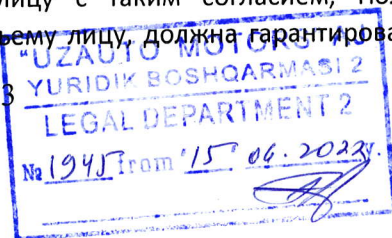 лицу с таким согласием,
ьему лицу, должна гарантирова
3
"UZAUTO MOTORS"
YURIDIK BOSHQARMASI 2
LEGAL DEPARTMENT 2
№ 1945 from "15" 06. 2022y.